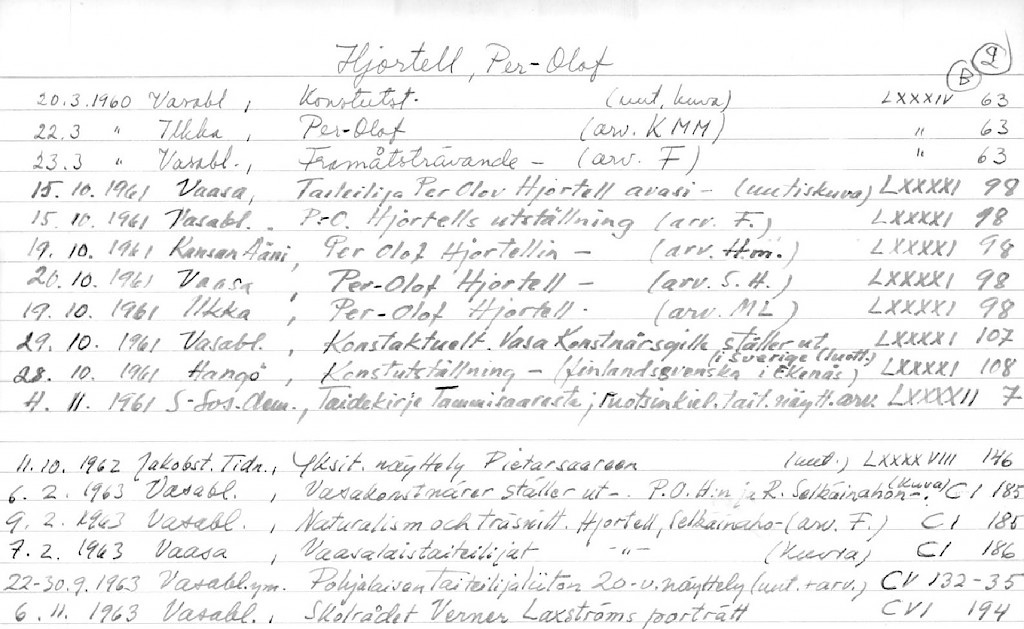 Hjortell, Per-Olof
B 2
20.3.1960 Vasabl , Konstutst. (uut, kuva) LXXXIV 63
22.3 " Ilkka , Per-Olof (arv. KMM) " 63
23.3 " Vasabl., Framåtsträvande - (arv. F) " 63
15.10.1961 Vaasa, Taiteilija Per Olov Hjortell avasi - (uutiskuva) LXXXXI 98
15.10.1961 Vasabl. P-O. Hjortells utställning (arv. F.) LXXXXI 98
19.10.1961 Kansan Ääni, Per Olof Hjortellin - (arv. H.m.) LXXXXI 98
20.10.1961 Vaasa , Per-Olof Hjortell - (arv. S.H.) LXXXXI 98
19.10.1961 Ilkka , Per-Olof Hjortell. (arv. ML) LXXXXI 98
29.10.1961 Vasabl. , Konstaktuellt. Vasa Konstnärsgille ställer ut LXXXXI 107
i Sverige (luott.)
28.10.1961 Hangö , Konstutställning - (finlandssvenska i Ekenäs) LXXXXI 108
4.11.1961 S-Sos.Dem., Taidekirje Tammisaaresta; ruotsinkiel. tait. näytt. arv. LXXXXII 7
11.10.1962 Jakobst. Tidn., Yksit. näyttely Pietarsaareen (uut.) LXXXXVIII 146
6.2.1963 Vasabl. , Vasakonstnärer ställer ut-. P.O.H:n ja R. Selkäinahon-. (kuva) CI 185
9.2.1963 Vasabl. , Naturalism och träsnitt. Hjortell, Selkäinaho-(arv. F.) CI 185
7.2.1963 Vaasa , Vaasalaistaiteilijat -"- (kuvia) CI 186
22-30.9.1963 Vasabl.ym. Pohjalaisen Taiteilijaliiton 20-v. näyttely (uut. + arv.) CV 132-35
6.11.1963 Vasabl. , Skolrådet Verner Laxströms porträtt CVI 194